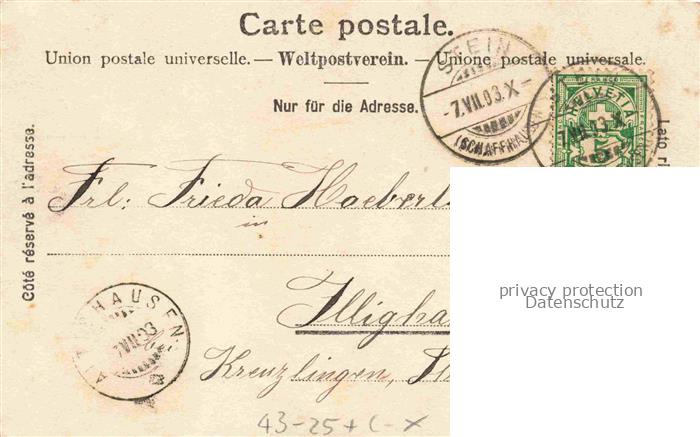 Carte postale.
Union postale universelle. — Weltpostverein. — Unione postale universale.
Nur für die Adresse.
Côté réservé à l'adresse.
Lato ri
STEIN
-7.VII.03.X-
(SCHAFFHAUSEN)
HELVETIA
VII.03.X
Frl: Frieda Haeberl
in
Illigha
Kreuzlingen,
HAUSEN
7.VII.03
43-25+C-X
privacy protection
Datenschutz